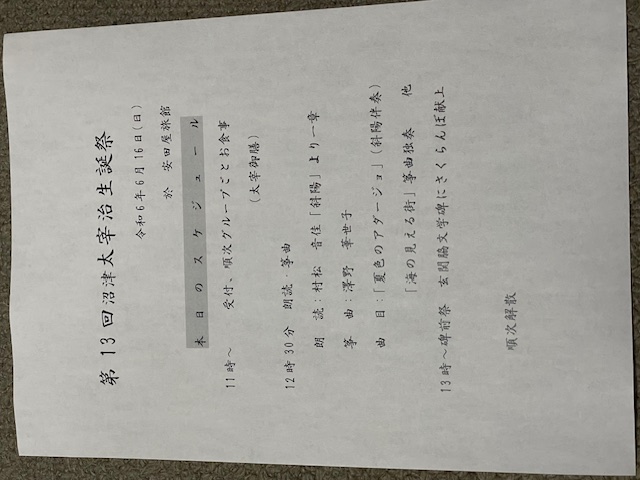 第13回沼津太宰治生誕祭
令和6年6月16日(日)
於 安田屋旅館
本日のスケジュール
11時～ 受付、順次グループごとお食事
(太宰御膳)
12時30分 朗読・箏曲
朗 読：村松 音佳「斜陽」より一章
箏 曲：澤野 華世子
曲 目：「夏色のアダージョ」(斜陽伴奏)
「海の見える街」箏曲独奏 他
13時～碑前祭 玄関脇文学碑にさくらんぼ献上
順次解散